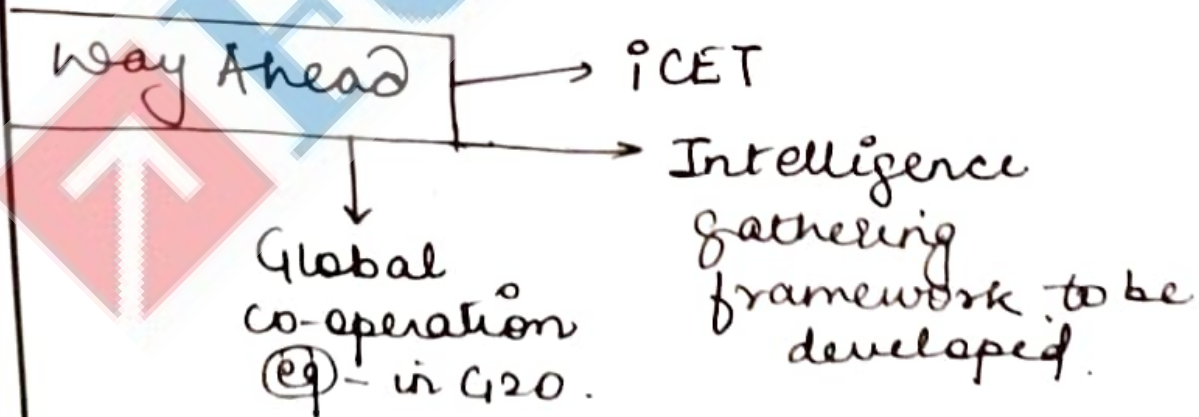 Way Ahead
iCET
Intelligence
gathering
framework to be
developed.
Global
co-operation
eg - in G20.